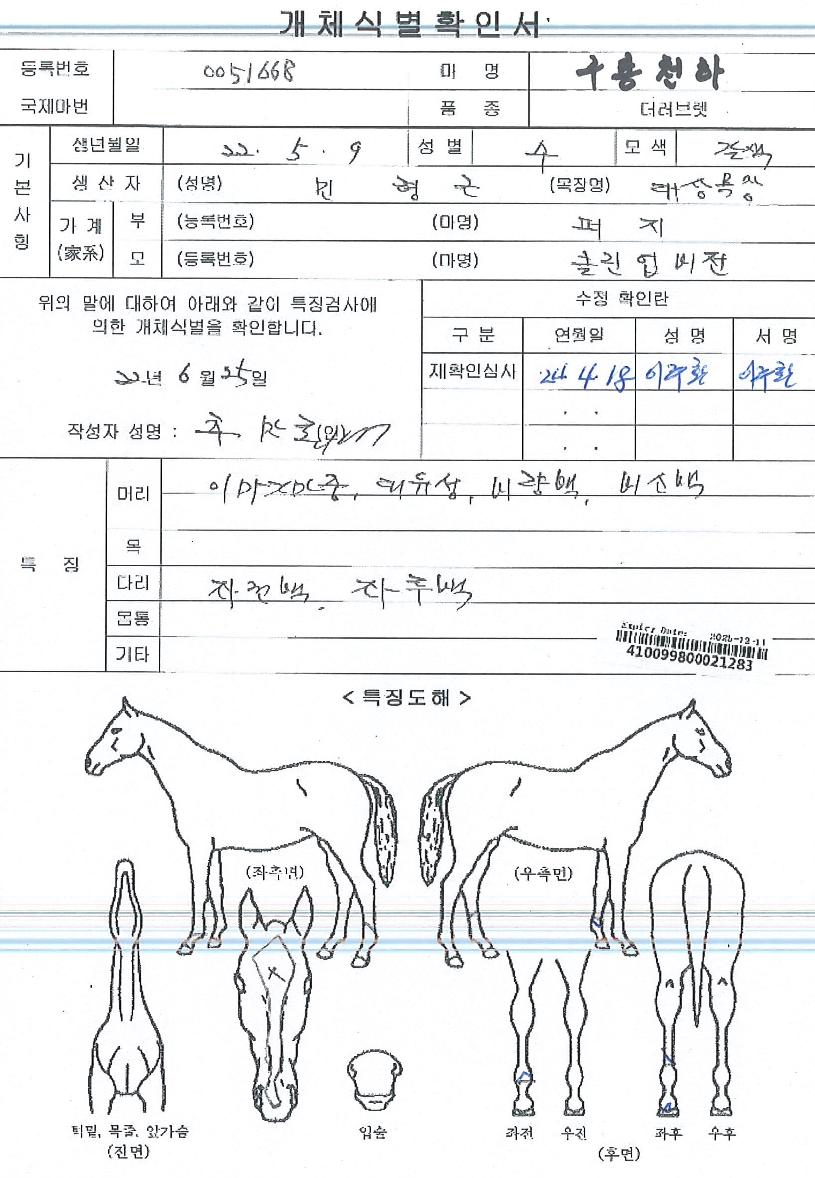 개체식별확인서
등록번호 0051668 마 명 구룡천하
국제마번 품 종 더러브렛
기본사항
생년월일 22. 5. 9 성별 수 모색 갈색
생산자 (성명) 민형근 (목장명) 대상목장
가계(家系) 부 (등록번호) (마명) 퍼지
모 (등록번호) (마명) 클린업비전
위의 말에 대하여 아래와 같이 특징검사에
의한 개체식별을 확인합니다.
22년 6월 25일
작성자 성명 : (인)
수정 확인란
구분 연월일 성명 서명
재확인심사 24. 4. 18
. .
. .
특 징
머리 이마자모중, 대유성, 비량백, 비소백
목
다리 좌전백, 좌후백
몸통
기타
Expiry Date: 2025-12-11
410099800021283
< 특징도해 >
(좌측면) (우측면)
턱밑, 목줄, 앞가슴
(전면)
입술
좌전 우전 좌후 우후
(후면)